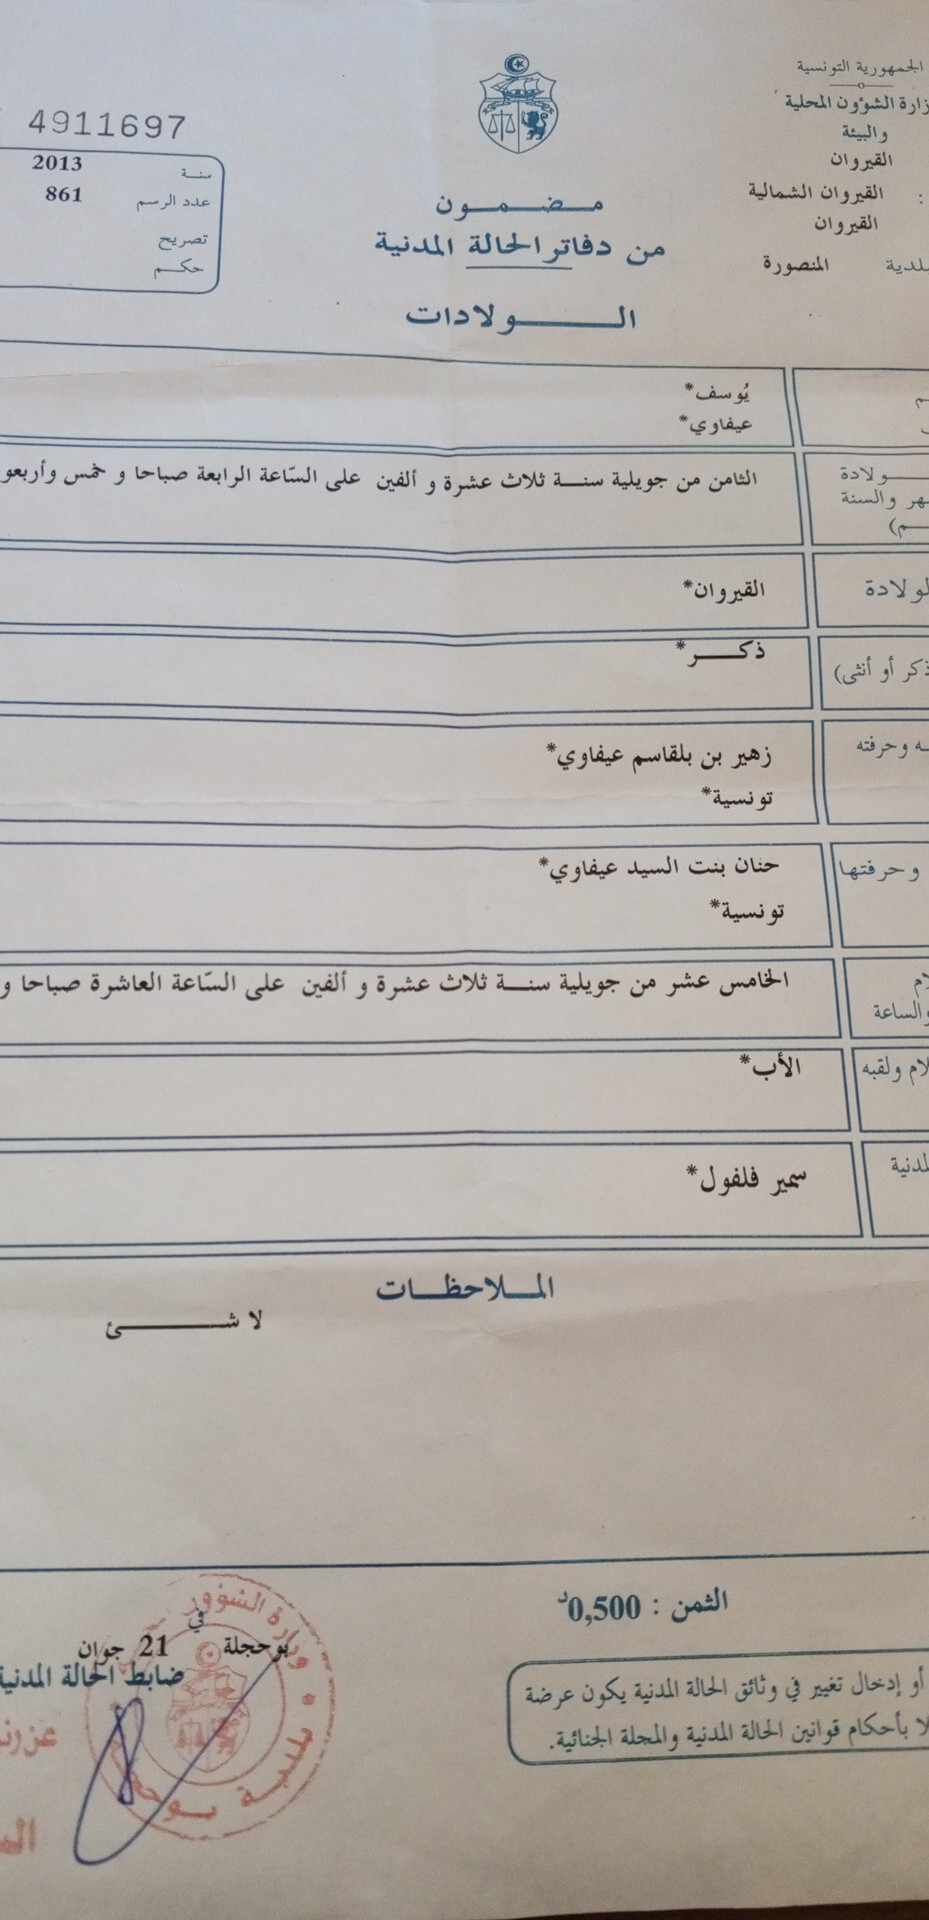 الجمهورية التونسية
وزارة الشؤون المحلية
والبيئة
القيروان
: القيروان الشمالية
القيروان
المنصورة
4911697
سنة 2013
عدد الرسم 861
تصريح
حكم
مضمون
من دفاتر الحالة المدنية
الولادات
يُوسف*
عيفاوي*
ولادة
والسنة
الثامن من جويلية سنة ثلاث عشرة و ألفين على السّاعة الرابعة صباحا و خمس وأربعو
القيروان*
ذكر أو أنثى)
ذكر*
وحرفته
زهير بن بلقاسم عيفاوي*
تونسية*
وحرفتها
حنان بنت السيد عيفاوي*
تونسية*
والساعة
الخامس عشر من جويلية سنة ثلاث عشرة و ألفين على السّاعة العاشرة صباحا و
ولقبه
الأب*
سمير فلفول*
الملاحظات
لا شئ
الثمن : 0,500د
أو إدخال تغيير في وثائق الحالة المدنية يكون عرضة
بأحكام قوانين الحالة المدنية والمجلة الجنائية.
بوحجلة في 21 جوان
ضابط الحالة المدنية
وزارة الشؤون
بلدية بوحجلة